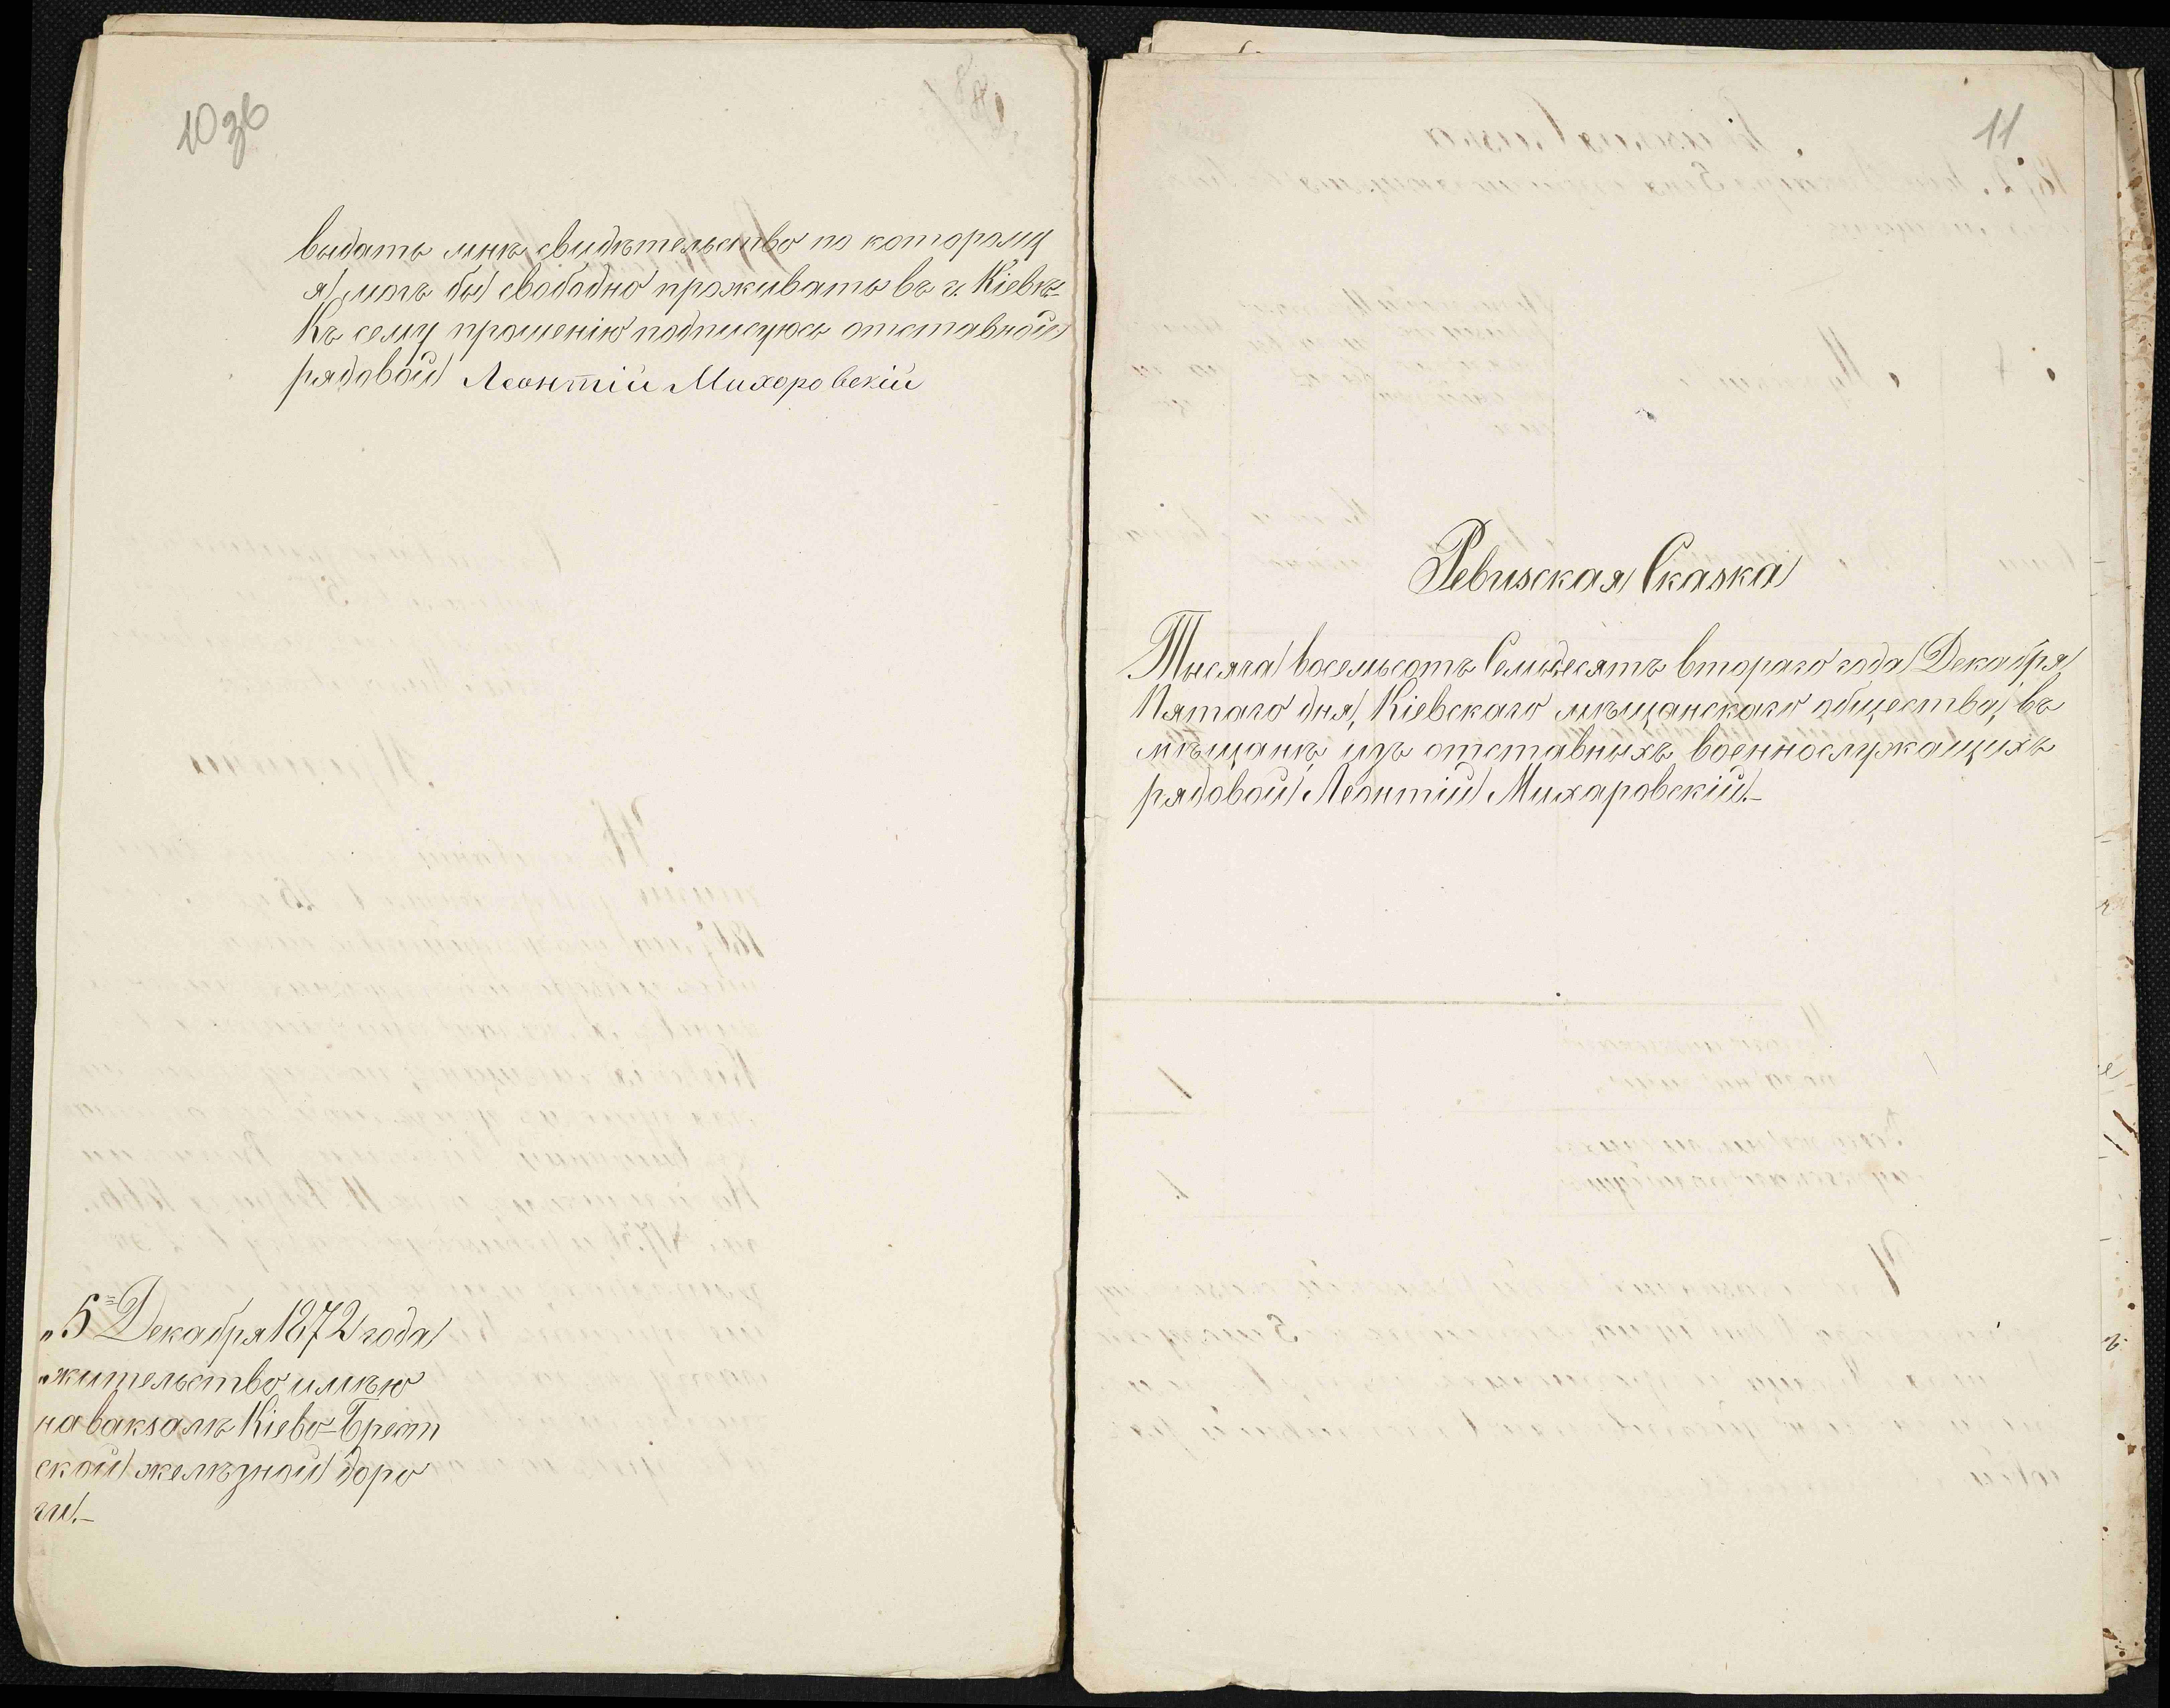 10 зв
выдать мнѣ свидѣтельство по которому
я могъ бы свободно проживать въ г. Кіевѣ.-
Къ сему прошенію подписуюсь отставной
рядовой Леонтій Михоровскій
„5 Декабря 1872 года
„жительство имѣю
на вакзалѣ Кіево-Брест
ской желѣзной доро
ги.-
11
Ревизская Сказка
Тысяча восемьсотъ Семьдесятъ втораго года Декабря
Пятаго дня, Кіевскаго мѣщанскаго общества, въ
мѣщанѣ изъ отставныхъ военнослужащихъ
рядовой Леонтій Михаровскій.-